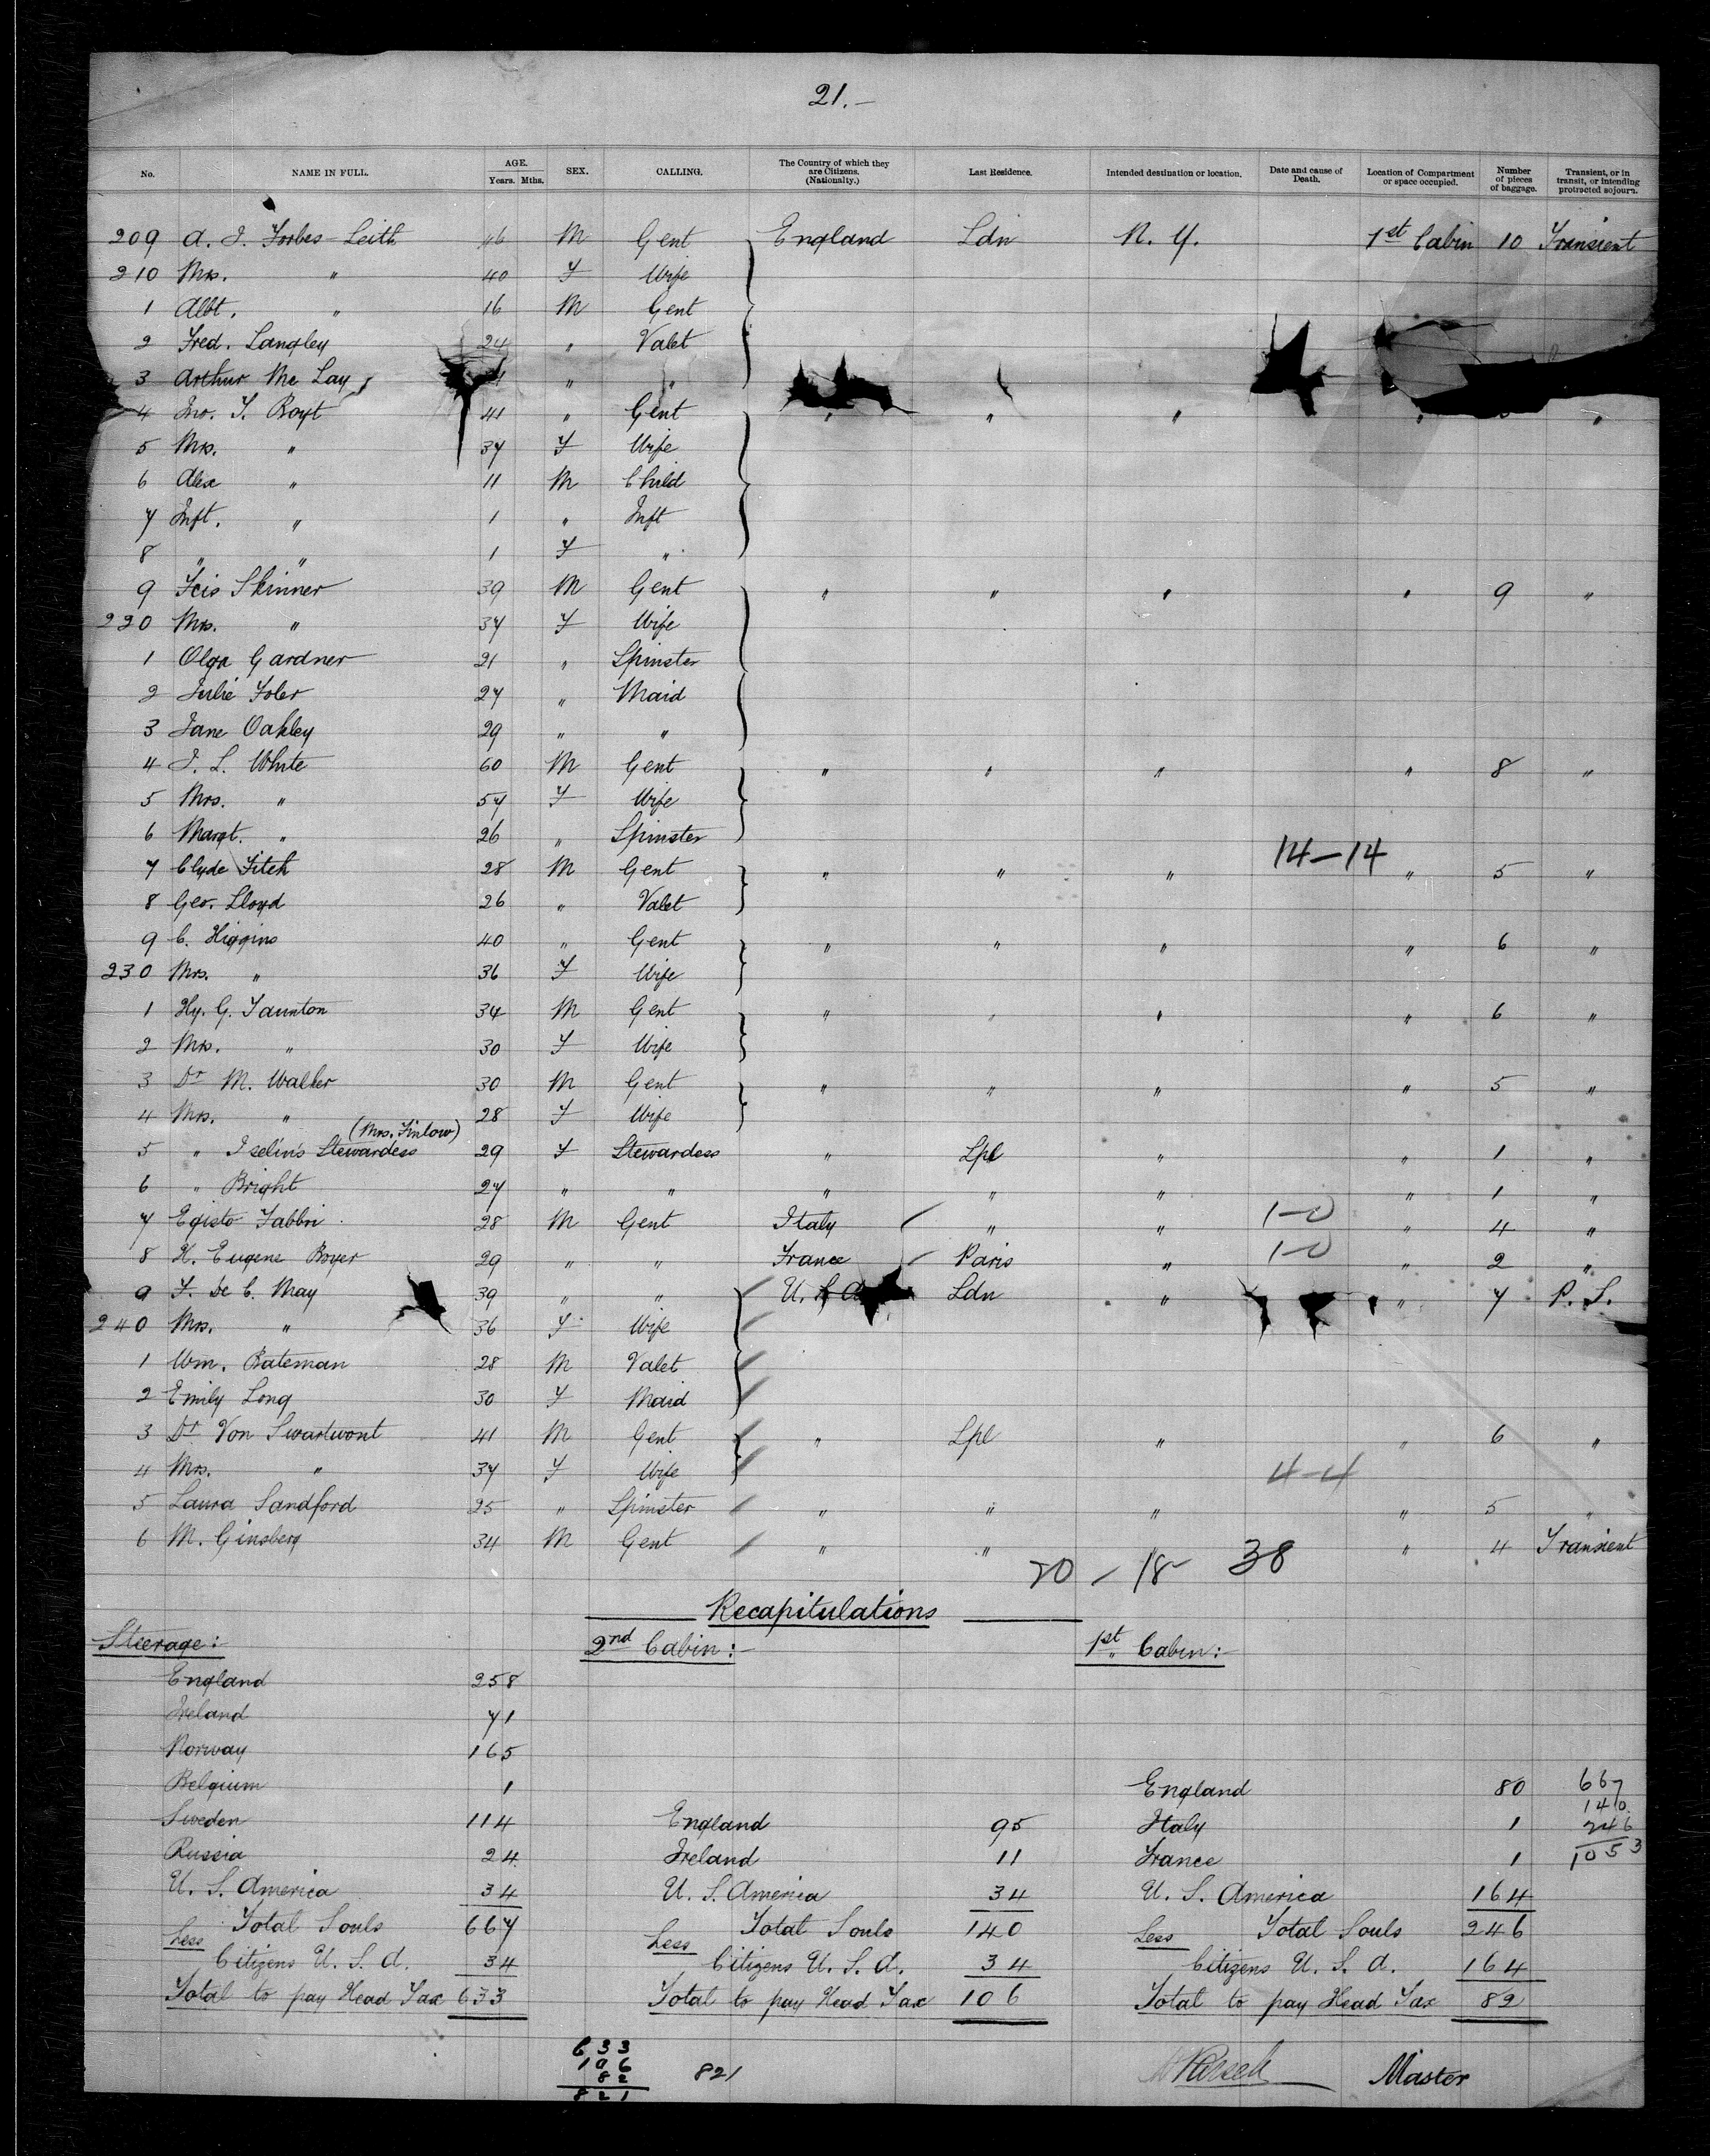 21.—
No. NAME IN FULL. AGE. Years. Mths. SEX. CALLING. The Country of which they are Citizens. (Nationalty.) Last Residence. Intended destination or location. Date and cause of Death. Location of Compartment or space occupied. Number of pieces of baggage. Transient, or in transit, or intending protracted sojourn.
209 A. J. Forbes-Leith 46 M Gent England Ldn N. Y. 1st Cabin 10 Transient
210 Mrs. " 40 F Wife
1 Albt. " 16 M Gent
2 Fred. Langley 24 " Valet
3 Arthur Mc Lay " "
4 Jno. T. Boyt 41 " Gent " " " " "
5 Mrs. " 37 F Wife
6 Alex " 11 M Child
7 Inft. " 1 " Inft
8 " " 1 F "
9 Fcis Skinner 39 M Gent " " " " 9 "
220 Mrs. " 37 F Wife
1 Olga Gardner 21 " Spinster
2 Julie Foler 27 " Maid
3 Jane Oakley 29 " "
4 J. L. White 60 M Gent " " " " 8 "
5 Mrs. " 57 F Wife
6 Margt. " 26 " Spinster
7 Clyde Fitch 28 M Gent " " " 14—14 " 5 "
8 Geo. Lloyd 26 " Valet
9 C. Higgins 40 " Gent " " " " 6 "
230 Mrs. " 36 F Wife
1 Hy. G. Taunton 34 M Gent " " " " 6 "
2 Mrs. " 30 F Wife
3 Dr M. Walker 30 M Gent " " " " 5 "
4 Mrs. " 28 F Wife
(Mrs. Finlow)
5 " Iselin's Stewardess 29 F Stewardess " Lpl " " 1 "
6 " Bright 27 " " " " " " 1 "
7 Egisto Fabbri 28 M Gent Italy " " 1-0 " 4 "
8 H. Eugene Boyer 29 " " France Paris " 1-0 " 2 "
9 F. De C. May 39 " " U. S. A Ldn " " 7 P. S.
240 Mrs. " 36 F Wife
1 Wm. Bateman 28 M Valet
2 Emily Long 30 F Maid
3 Dr Von Swartwout 41 M Gent " Lpl " " 6 "
4 Mrs. " 37 F Wife 4-4
5 Laura Sandford 25 " Spinster " " " " 5 "
6 M. Ginsberg 34 M Gent " " " 4 Transient
20 - 18- 38
Recapitulations
Steerage:- 2nd Cabin:- 1st Cabin:-
England 258
Ireland 71
Norway 165
Belgium 1 England 80 667
140
Sweden 114 England 95 Italy 1 246
Russia 24 Ireland 11 France 1 1053
U. S. America 34 U. S. America 34 U. S. America 164
Total Souls 667 Total Souls 140 Total Souls 246
Less Citizens U. S. A. 34 Less Citizens U. S. A. 34 Less Citizens U. S. A. 164
Total to pay Head Tax 633 Total to pay Head Tax 106 Total to pay Head Tax 82
633
106
82 821
821
Master